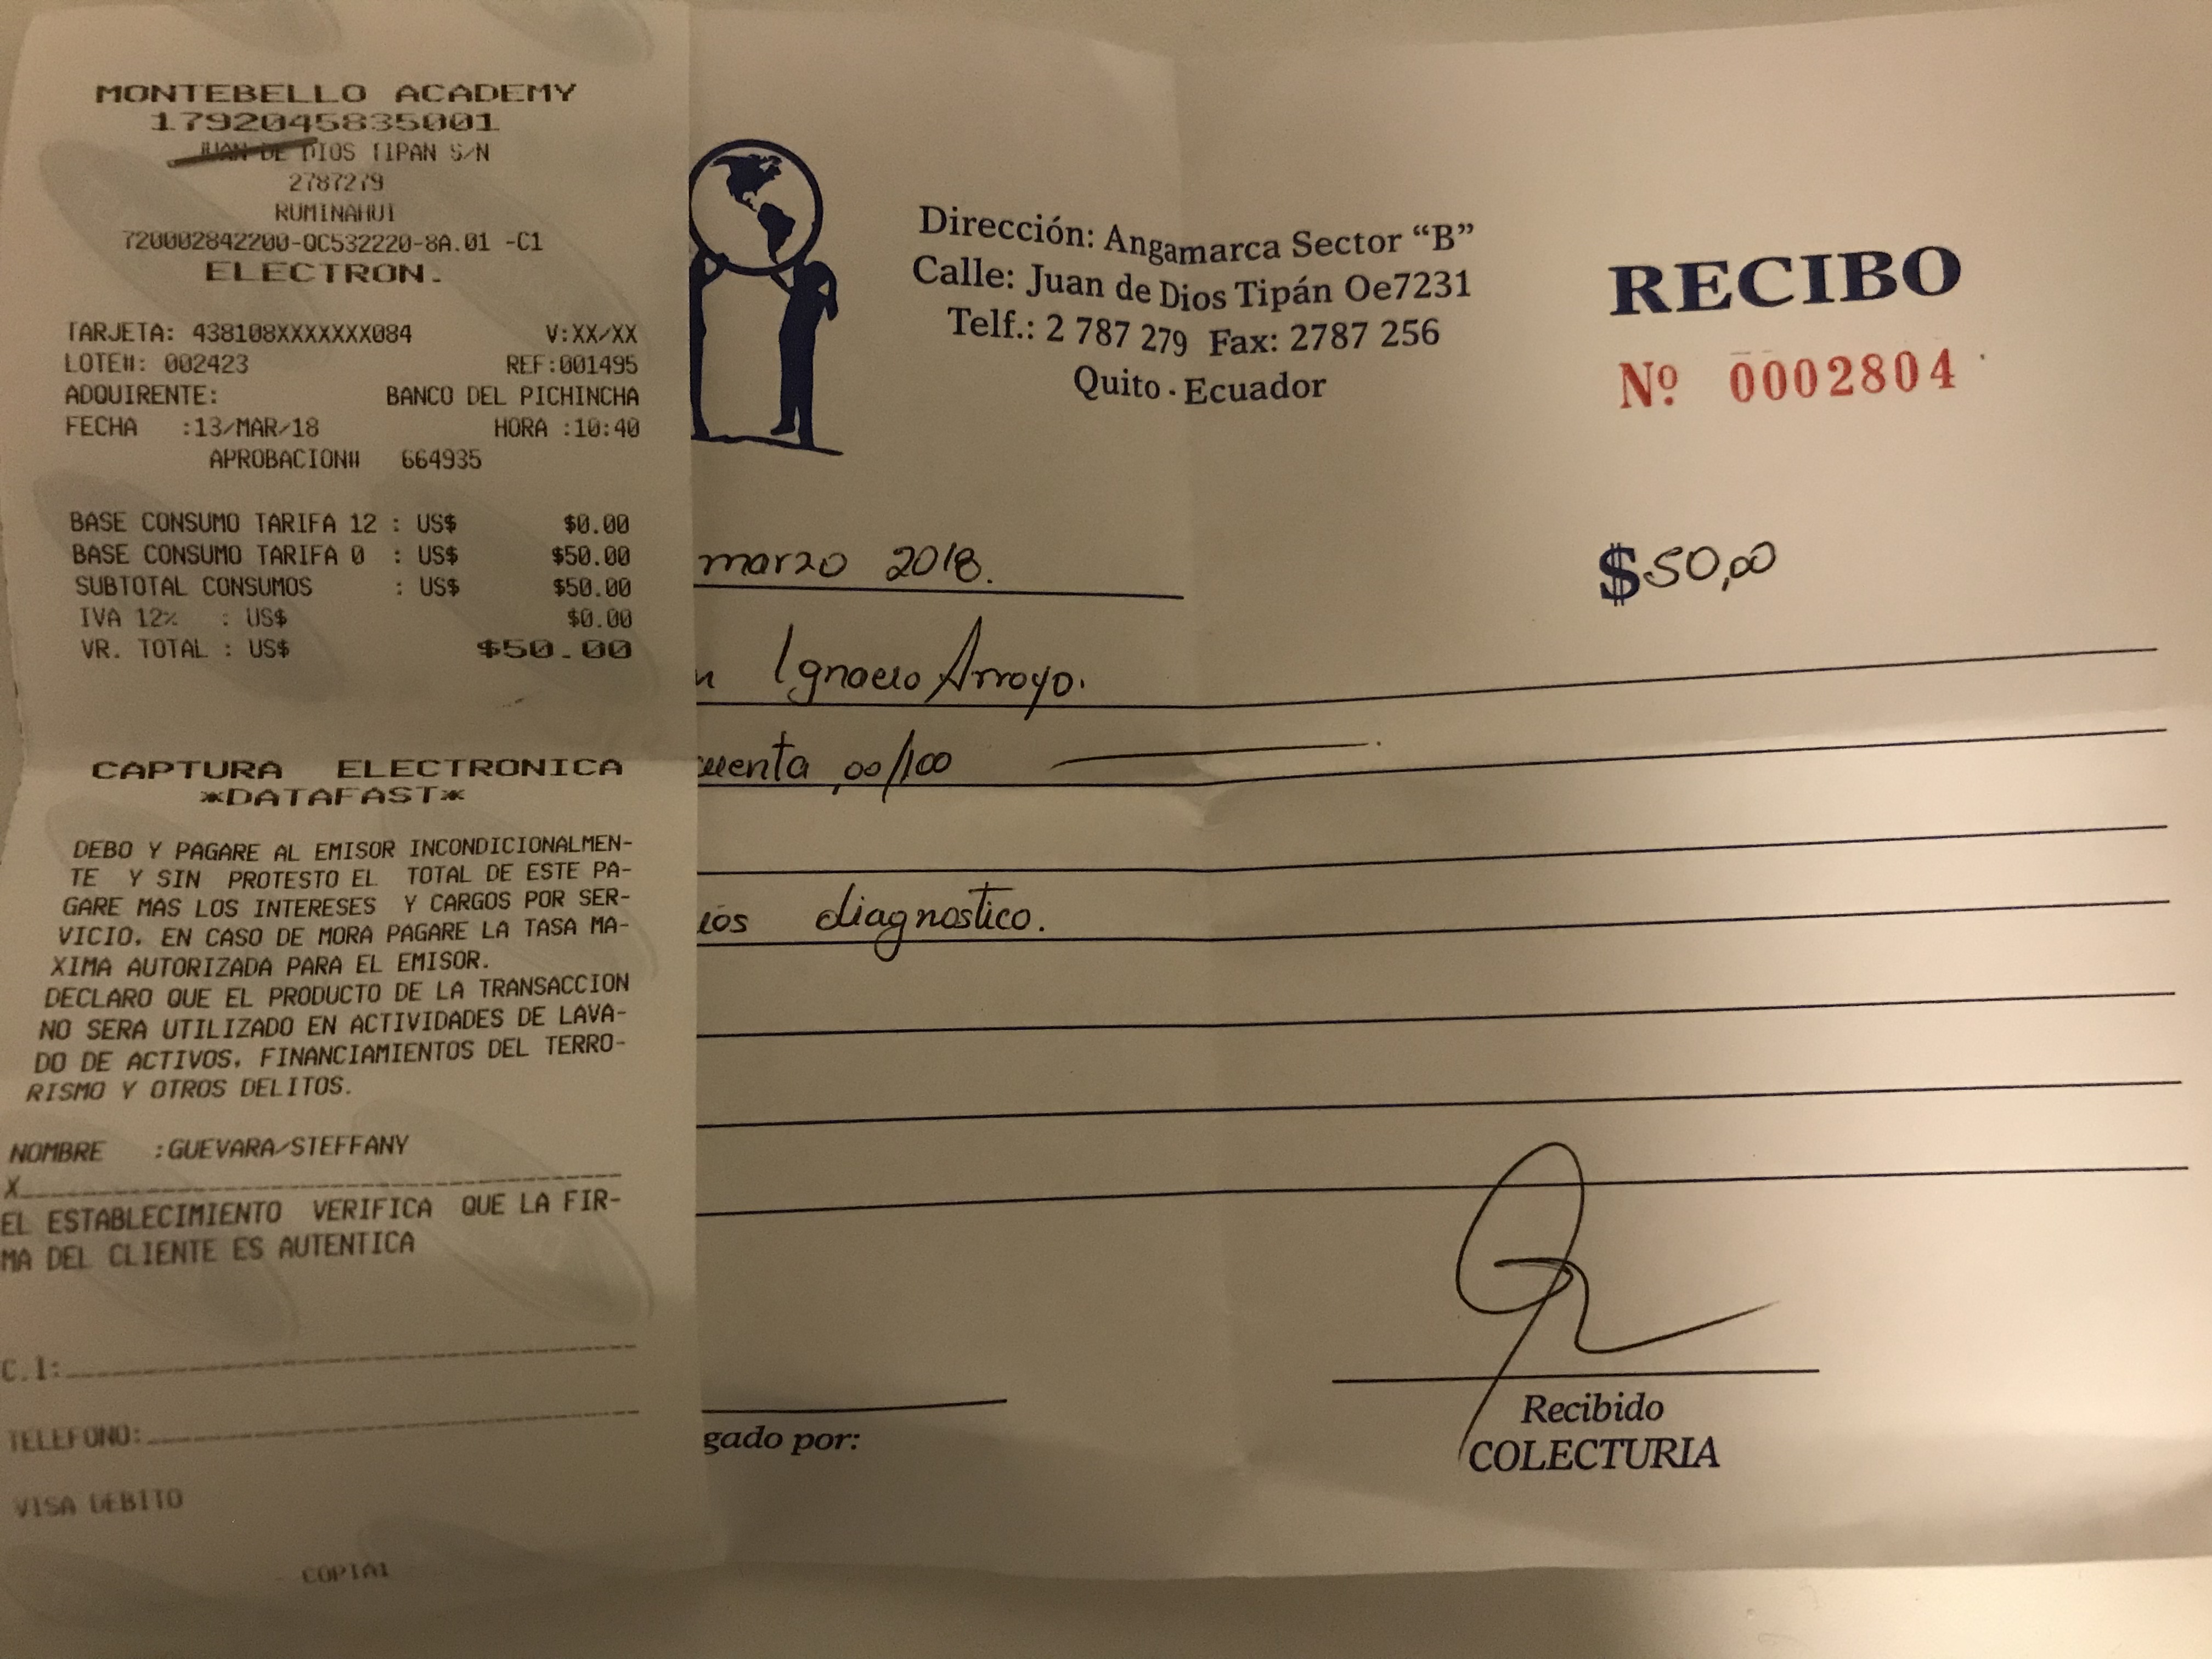 MONTEBELLO ACADEMY
1792045835001
JUAN DE DIOS TIPAN S/N
2787279
RUMINAHUI
ELECTRON.
TARJETA: 438108XXXXXXX084 V:XX/XX
LOTE#: 002423 REF:001495
ADQUIRENTE: BANCO DEL PICHINCHA
FECHA :13/MAR/18 HORA :10:40
APROBACION# 664935
BASE CONSUMO TARIFA 12 : US$ $0.00
BASE CONSUMO TARIFA 0 : US$ $50.00
SUBTOTAL CONSUMOS : US$ $50.00
IVA 12% : US$ $0.00
VR. TOTAL : US$ $50.00
CAPTURA ELECTRONICA
*DATAFAST*
DEBO Y PAGARE AL EMISOR INCONDICIONALMEN-
TE Y SIN PROTESTO EL TOTAL DE ESTE PA-
GARE MAS LOS INTERESES Y CARGOS POR SER-
VICIO. EN CASO DE MORA PAGARE LA TASA MA-
XIMA AUTORIZADA PARA EL EMISOR.
DECLARO QUE EL PRODUCTO DE LA TRANSACCION
NO SERA UTILIZADO EN ACTIVIDADES DE LAVA-
DO DE ACTIVOS, FINANCIAMIENTOS DEL TERRO-
RISMO Y OTROS DELITOS.
NOMBRE :GUEVARA/STEFFANY
X
EL ESTABLECIMIENTO VERIFICA QUE LA FIR-
MA DEL CLIENTE ES AUTENTICA
C.I:
TELEFONO:
VISA DEBITO
Dirección: Angamarca Sector “B”
Calle: Juan de Dios Tipán Oe7231
Telf.: 2 787 279 Fax: 2787 256
Quito - Ecuador
RECIBO
Nº 0002804
marzo 2018.
$50,00
n Ignacio Arroyo.
uenta, 00/100
ios diagnostico.
gado por:
Recibido
COLECTURIA